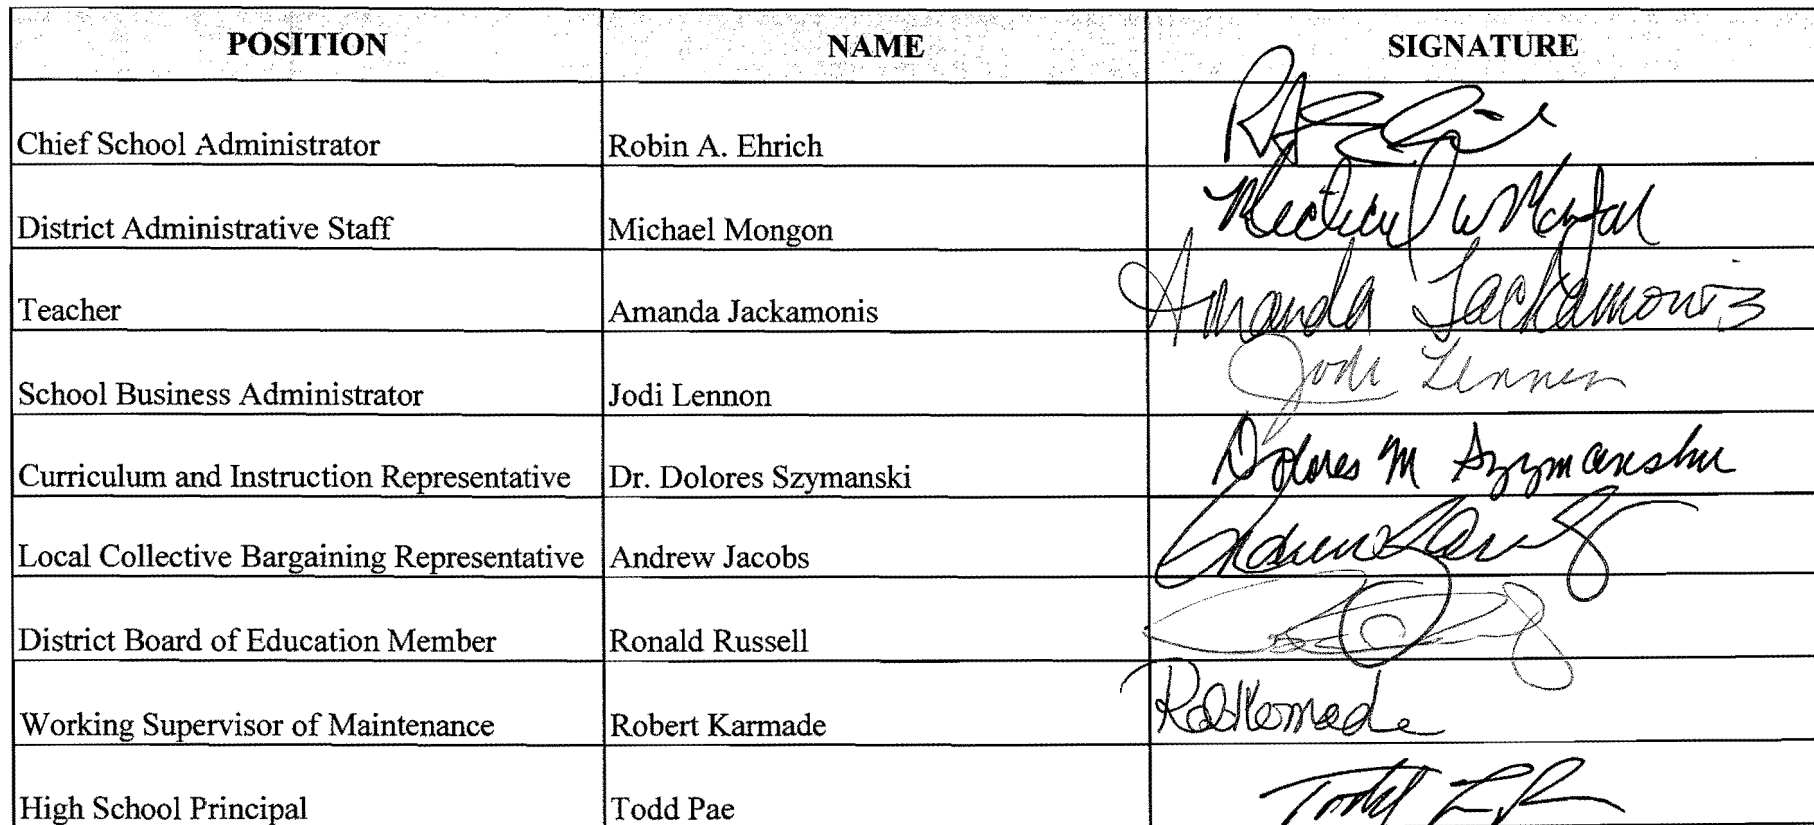 POSITION NAME SIGNATURE
Chief School Administrator Robin A. Ehrich
District Administrative Staff Michael Mongon Michael W Mongon
Teacher Amanda Jackamonis Amanda Jackamonis
School Business Administrator Jodi Lennon Jodi Lennon
Curriculum and Instruction Representative Dr. Dolores Szymanski Dolores M Szymanski
Local Collective Bargaining Representative Andrew Jacobs Andrew Jacobs
District Board of Education Member Ronald Russell
Working Supervisor of Maintenance Robert Karmade Rob Karmade
High School Principal Todd Pae Todd